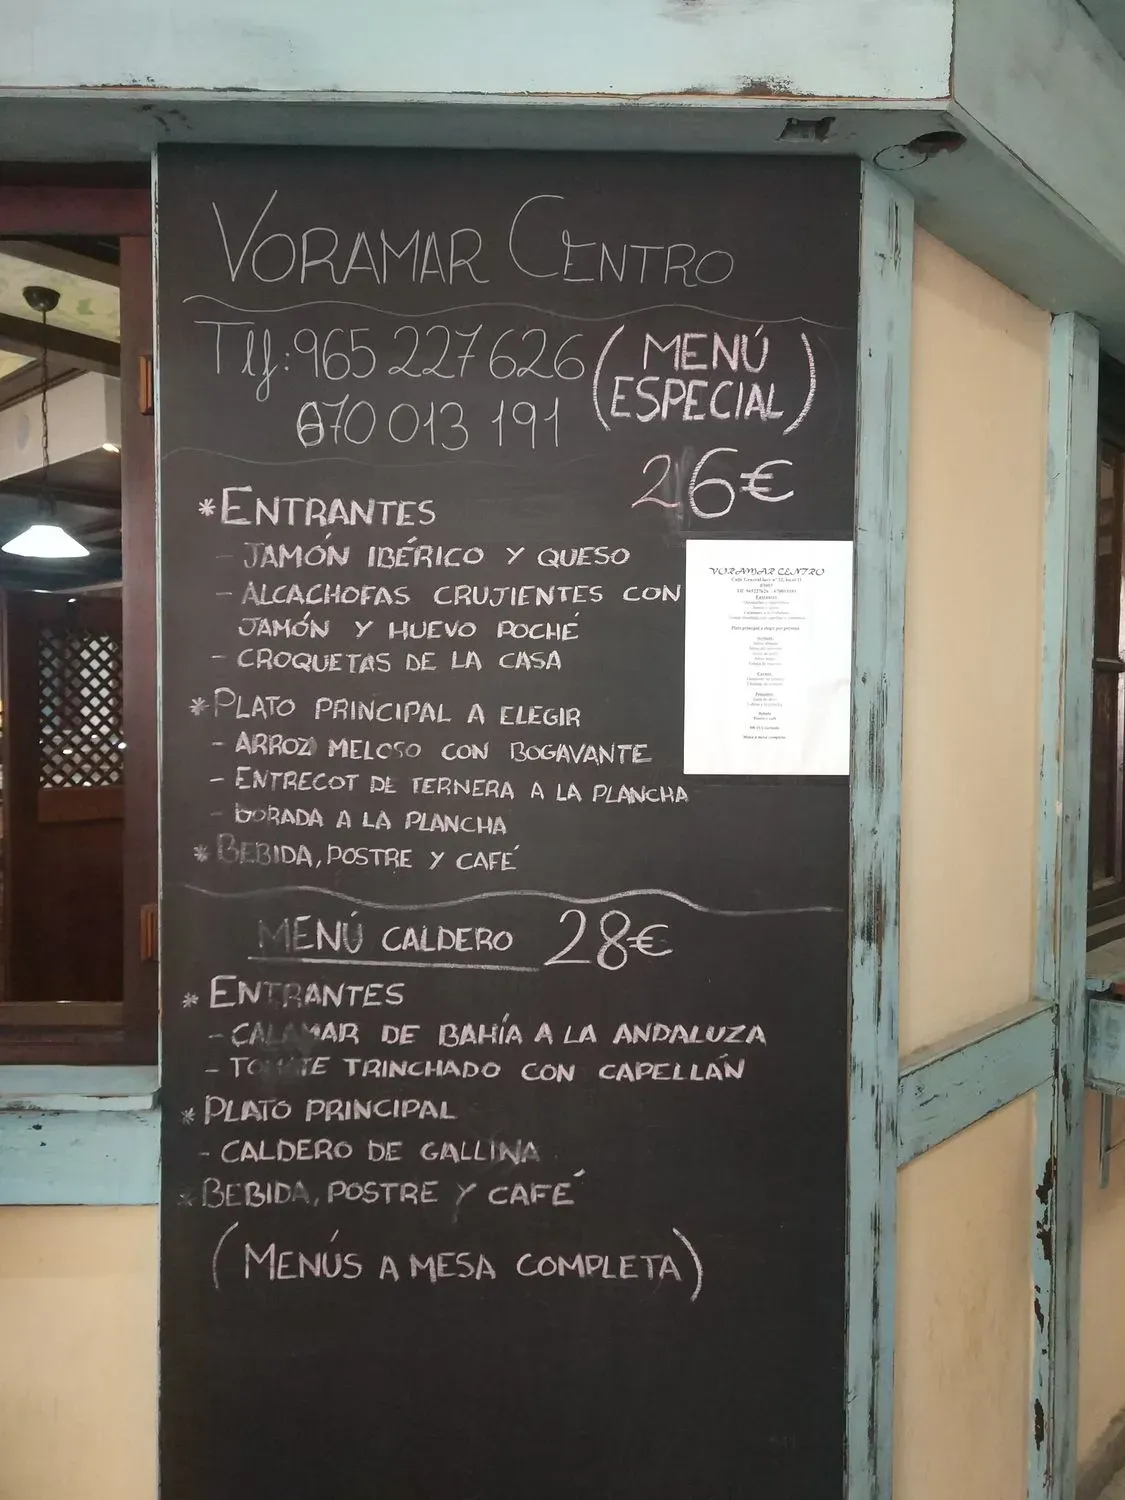 VORAMAR CENTRO
Tlf: 965 227 626
670 013 191
(MENÚ
ESPECIAL)
26€
* ENTRANTES
- JAMÓN IBÉRICO Y QUESO
- ALCACHOFAS CRUJIENTES CON
JAMÓN Y HUEVO POCHÉ
- CROQUETAS DE LA CASA
* PLATO PRINCIPAL A ELEGIR
- ARROZ MELOSO CON BOGAVANTE
- ENTRECOT DE TERNERA A LA PLANCHA
- DORADA A LA PLANCHA
* BEBIDA, POSTRE Y CAFÉ
VORAMAR CENTRO
Plato principal a elegir por persona
MENÚ CALDERO 28€
* ENTRANTES
- CALAMAR DE BAHÍA A LA ANDALUZA
- TOMATE TRINCHADO CON CAPELLÁN
* PLATO PRINCIPAL
- CALDERO DE GALLINA
* BEBIDA, POSTRE Y CAFÉ
(MENÚS A MESA COMPLETA)